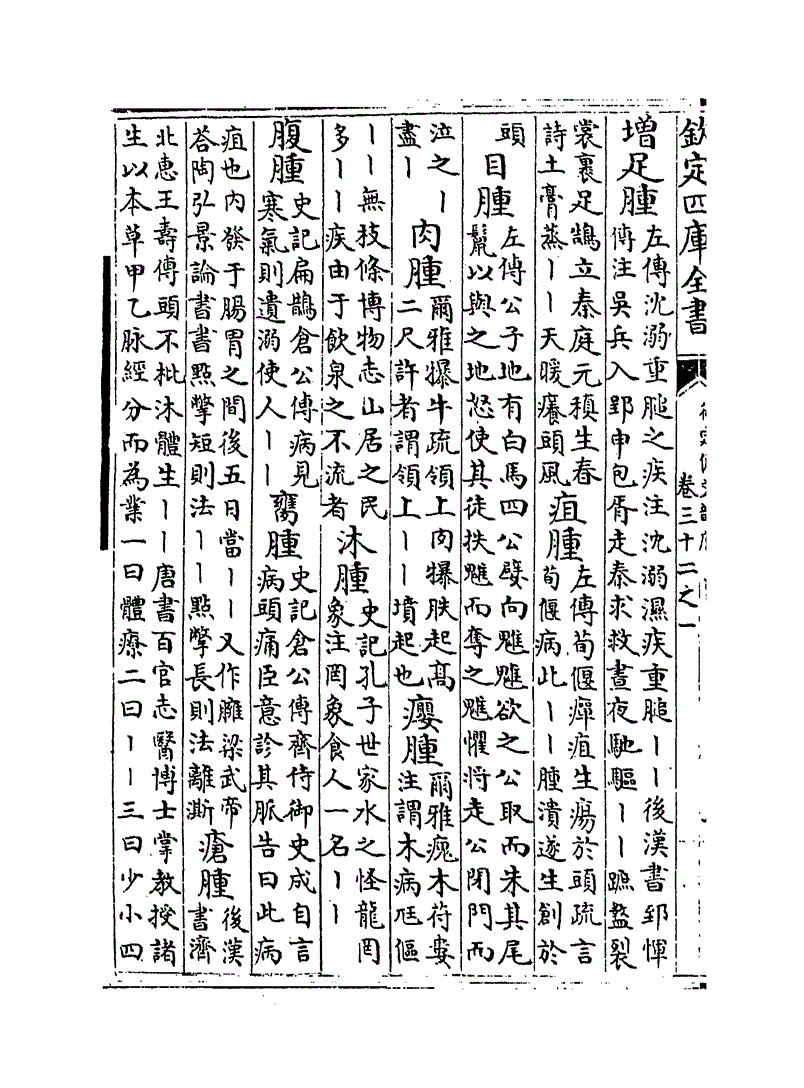 欽定四庫全書
御定佩文韻府
卷三十二之一
增足腫
左傳沈溺重膇之疾注沈溺濕疾重膇丨丨後漢書郅惲
傳注吳兵入郢申包胥走秦求救晝夜馳驅丨丨蹠盭裂
裳裹足鵠立秦庭元稹生春
詩土膏蒸丨丨天暖癢頭風
疽腫
左傳荀偃癉疽生瘍於頭疏言
荀偃病此丨丨腫潰遂生創於
頭
目腫
左傳公子地有白馬四公嬖向魋魋欲之公取而朱其尾
鬛以與之地怒使其徒抶魋而奪之魋懼將走公閉門而
泣之丨
盡丨
肉腫
爾雅犦牛疏領上肉犦胅起高
二尺許者謂領上丨丨墳起也
癭腫
爾雅瘣木苻婁
注謂木病尫傴
丨丨無枝條博物志山居之民
多丨丨疾由于飲泉之不流者
沐腫
史記孔子世家水之怪龍罔
象注罔象食人一名丨丨
腹腫
史記扁鵲倉公傳病見
寒氣則遺溺使人丨丨
腫
史記倉公傳齊侍御史成自言
病頭痛臣意診其脈告曰此病
疽也内發于腸胃之間後五日當丨丨又作臃梁武帝
答陶弘景論書書點撆短則法丨丨點撆長則法離澌
瘡腫
後漢
書濟
北惠王壽傳頭不枇沐體生丨丨唐書百官志醫博士掌教授諸
生以本草甲乙脈經分而為業一曰體療二曰丨丨三曰少小四